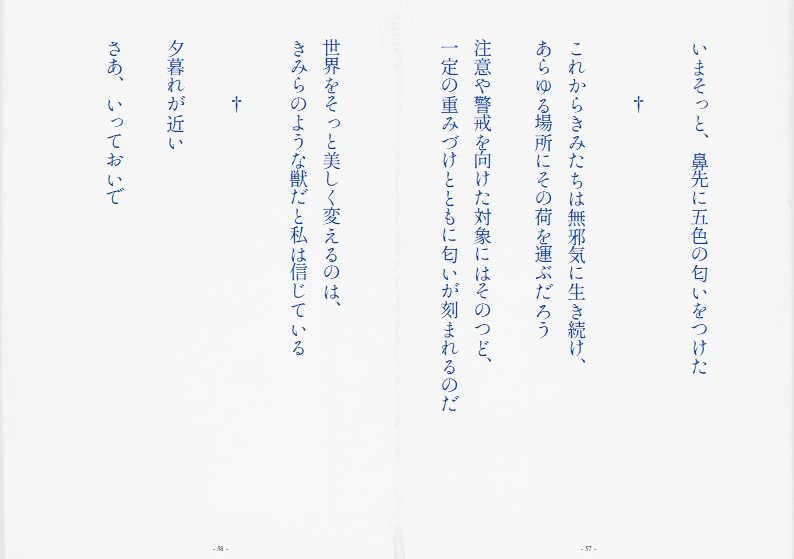 いまそっと、鼻先に五色の匂いをつけた
†
これからきみたちは無邪気に生き続け、
あらゆる場所にその荷を運ぶだろう
注意や警戒を向けた対象にはそのつど、
一定の重みづけとともに匂いが刻まれるのだ
- 57 -
世界をそっと美しく変えるのは、
きみらのような獣だと私は信じている
†
夕暮れが近い
さあ、いっておいで
- 58 -